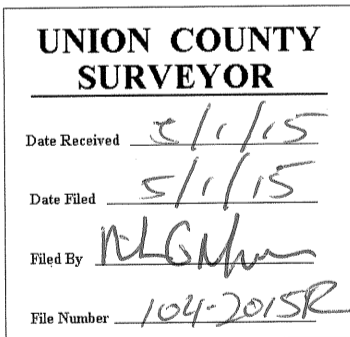 UNION COUNTY
SURVEYOR
Date Received 5/1/15
Date Filed 5/1/15
Filed By
File Number 104-2015R